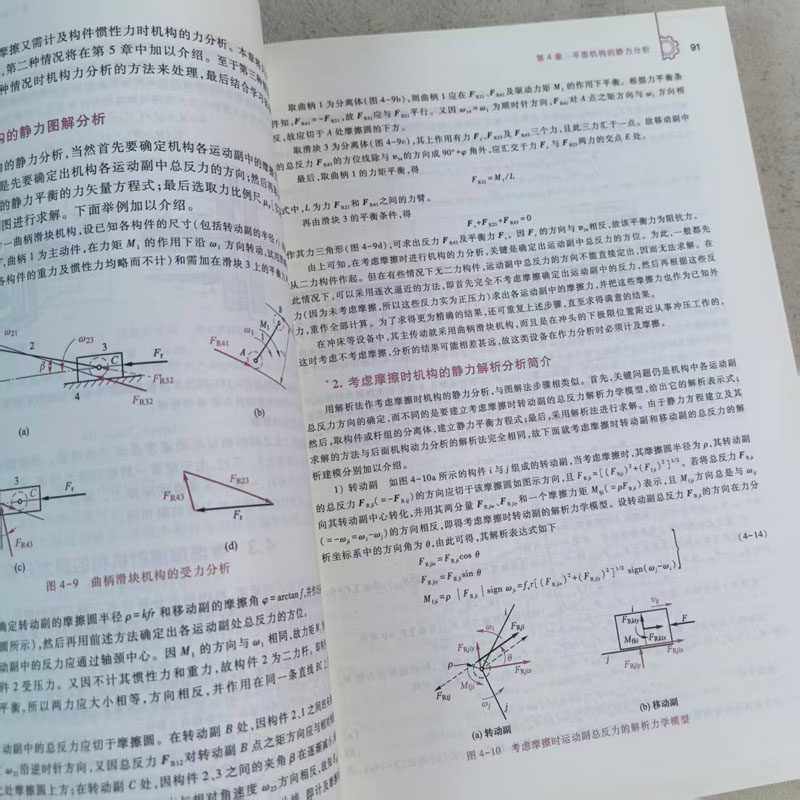 摩擦又需计及构件惯性力时机构的力分析。本章将
第二种情况将在第 5 章中加以介绍。至于第三种
种情况时机构力分析的方法来处理,最后结合学习
构的静力图解分析
的静力分析,当然首先要确定机构各运动副中的摩擦
是先要确定出机构各运动副中总反力的方向;然后再
的静力平衡的力矢量方程式;最后选取力比例尺 μF
图进行求解。下面举例加以介绍。
一曲柄滑块机构,设已知各构件的尺寸(包括转动副的半径
,曲柄 1 为主动件,在力矩 M1 的作用下沿 ω1 方向转动,试用
各构件的重力及惯性力均略而不计)和需加在滑块 3 上的平衡力
ω21
ω23
2
3
C
β
Fr
FR32
FR32
4
(a)
FR41
M1
B
A
(b)
3
C
Fr
FR43
(c)
FR43
FR23
Fr
(d)
图 4-9 曲柄滑块机构的受力分析
确定转动副的摩擦圆半径 ρ=kfr 和移动副的摩擦角 φ=arctan f,并
圆所示),然后再用前述方法确定出各运动副处总反力的方位。
动副中的反力应通过轴颈中心。因 M1 的方向与 ω1 相同,故力矩
件 2 受压力。又因不计其惯性力和重力,故构件 2 为二力杆,
平衡,所以两力应大小相等,方向相反,并作用在同一条直线
动副中的总反力应切于摩擦圆。在转动副 B 处,因构件 2、1 之间的
ω21沿逆时针方向,又因总反力 FR12对转动副 B 点之矩方向应与
处摩擦圆上方;在转动副 C 处,因构件 2、3 之间的夹角 β 在逐渐减小
与相对角速度 ω23 方向相反,故
第 4 章 平面机构的静力分析 91
取曲柄 1 为分离体(图 4-9b),则曲柄 1 应在 FR21、FR41及驱动力矩 M1 的作用下平衡。根据力平衡条
件知,FR41=-FR21,故 FR41应与 FR21平行。又因 ω14=ω1 为顺时针方向,FR41对 A 点之矩方向与 ω1 方向相
反,故应切于 A 处摩擦圆的下方。
取滑块 3 为分离体(图 4-9c),其上作用有力 Fr、FR23及 FR43三个力,且此三力汇于一点。故移动副中
的总反力 FR43的方位线除与 v34的方向成 90°+φ 角外,应汇交于力 Fr 与 FR23两力的交点 E 处。
最后,取曲柄 1 的力矩平衡,得
FR21=M1/L
式中,L 为力 FR21和 FR41之间的力臂。
再由滑块 3 的平衡条件,得
Fr+FR23+FR43=0
作其力三角形(图 4-9d),可求出反力 FR43及平衡力 Fr。因 Fr 的方向与 v34相反,故该平衡力为阻抗力。
由上可知,在考虑摩擦时进行机构的力分析,关键是确定出运动副中总反力的方位。为此,一般都先
从二力构件作起。但在有些情况下无二力构件,运动副中总反力的方向不能直接定出,因而无法求解。在
此情况下,可以采用逐次逼近的方法,即首先完全不考虑摩擦确定出运动副中的反力,然后再根据这些反
力(因为未考虑摩擦,所以这些反力实为正压力)求出各运动副中的摩擦力,并把这些摩擦力也作为已知外
力,重作全部计算。为了求得更为精确的结果,还可重复上述步骤,直至求得满意的结果。
在冲床等设备中,其主传动就采用曲柄滑块机构,而且是在冲头的下极限位置附近从事冲压工作的,
这时考虑不考虑摩擦,分析的结果可能相差甚远,故这类设备在作力分析时必须计及摩擦。
*2. 考虑摩擦时机构的静力解析分析简介
用解析法作考虑摩擦时机构的静力分析,与图解法步骤相类似。首先,关键问题仍是机构中各运动副
总反力方向的确定,而不同的是要建立考虑摩擦时转动副的总反力解析力学模型,给出它的解析表示式;
然后,取构件或杆组的分离体,建立静力平衡方程式;最后,采用解析法进行求解。由于静力方程建立及其
求解的方法与后面机构动力分析的解析法完全相同,故下面就考虑摩擦时转动副和移动副的总反力的解
析建模分别加以介绍。
1) 转动副 如图 4-10a 所示的构件 i 与 j 组成的转动副,当考虑摩擦时,其摩擦圆半径为 ρ,其转动副
的总反力 FRji(=-FRij)的方向应切于该摩擦圆如图示方向,且 FRji=[(FRjix)²+(FRjiy)²]1/2。若将总反力 FRji
向其转动副中心转化,并用其两分量 FRjix、FRjiy和一个摩擦力矩 Mfji(=ρFRji)表示,且 Mfji方向总是与 ωij
(=-ωji=ωi-ωj)的方向相反,即得考虑摩擦时转动副的解析力学模型。设转动副总反力 FRji的方向在力分
析坐标系中的方向角为 θ,由此可得,其解析表达式如下
FRjix=FRjicos θ
FRjiy=FRjisin θ
Mfji=ρ | FRji | sign ωji=fvr[(FRjix)²+(FRjiy)²]1/2 sign(ωj-ωi)
(4-14)
i
ωi
FRjiy
FRji
θ
ρ
FRjix
FRij
Mfji
ωj
j
(a) 转动副
vij
i
FRjiy
F
Mfji
FRjix
j
(b) 移动副
图 4-10 考虑摩擦时运动副总反力的解析力学模型